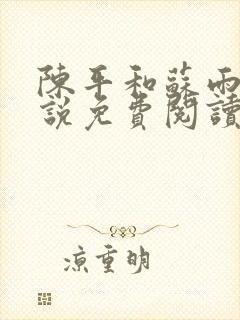 陳平和蘇雨
說免費閱讀
涼重明